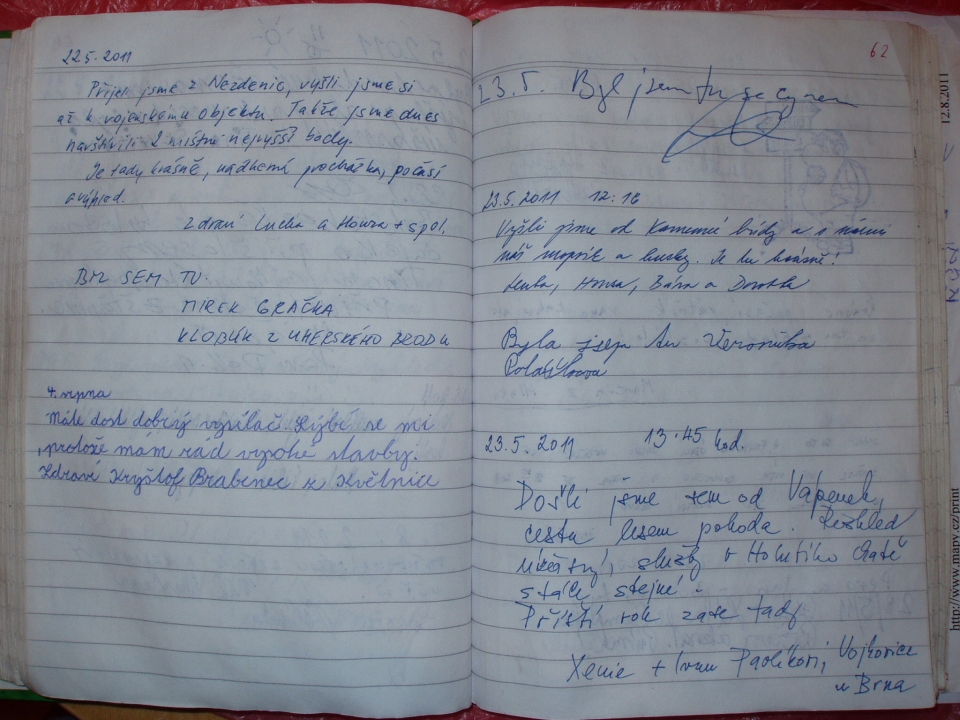 22.5. 2011
Přijeli jsme z Nezdenic, vyšli jsme si
až k vojenskému objektu. Takže jsme dnes
navštívili 2 místní nejvyšší body.
Je tady krásně, nádherná procházka, počasí
a výhled.
Zdraví Lucka a Honza + spol.
BYL SEM TU.
MIREK GRAČKA
KLOBÚK Z UHERSKÉHO BRODU
4. srpna
Máte dost dobrý vysílač. Lýbí se mi
, protože mám rád vysoké stavby.
Zdraví Kryštof Brabenec z Květnice
62
23.5. Byl jsem tu se synem
23.5.2011 12:16
Vyšli jsme od Kamenné búdy a s námi
náš mopsík a husky. Je tu krásně!
Honza, Bára a
Byla jsem tu Veronika
23.5. 2011 13.45 hod.
Došli jsme sem od Vápenek,
cesta lesem pohoda. Rozhled
služby v Holubího Chatě
stále stejné.
Příští rok zase tady
Xenie + Ivan Pavlíkovi, Vojkovice
u Brna
12.8.2011
http://www.mapy.cz/print